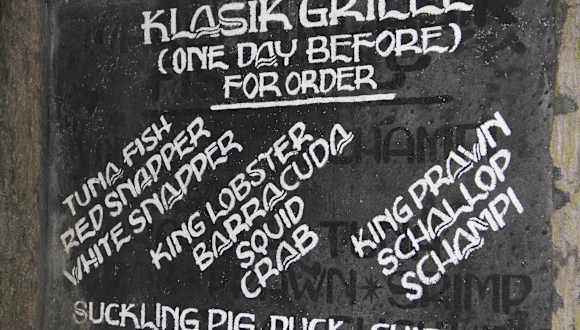 KLASIK GRILL
(ONE DAY BEFORE)
FOR ORDER
TUNA FISH
RED SNAPPER
WHITE SNAPPER
KING LOBSTER
BARRACUDA
SQUID
CRAB
KING PRAWN
SCHALLOP
SCHAMPI
SUCKLING PIG, DUCK